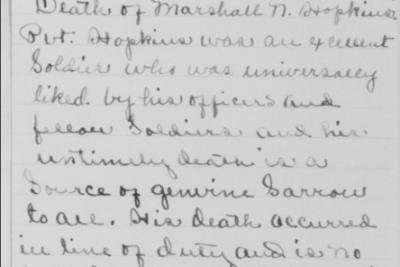 Death of Marshall N. Hopkins.
Pvt. Hopkins was an excellent
Soldier who was universally
liked by his officers and
fellow Soldiers and his
untimely death is a
Source of genuine Sarrow
to all. His death occurred
in line of duty and is no